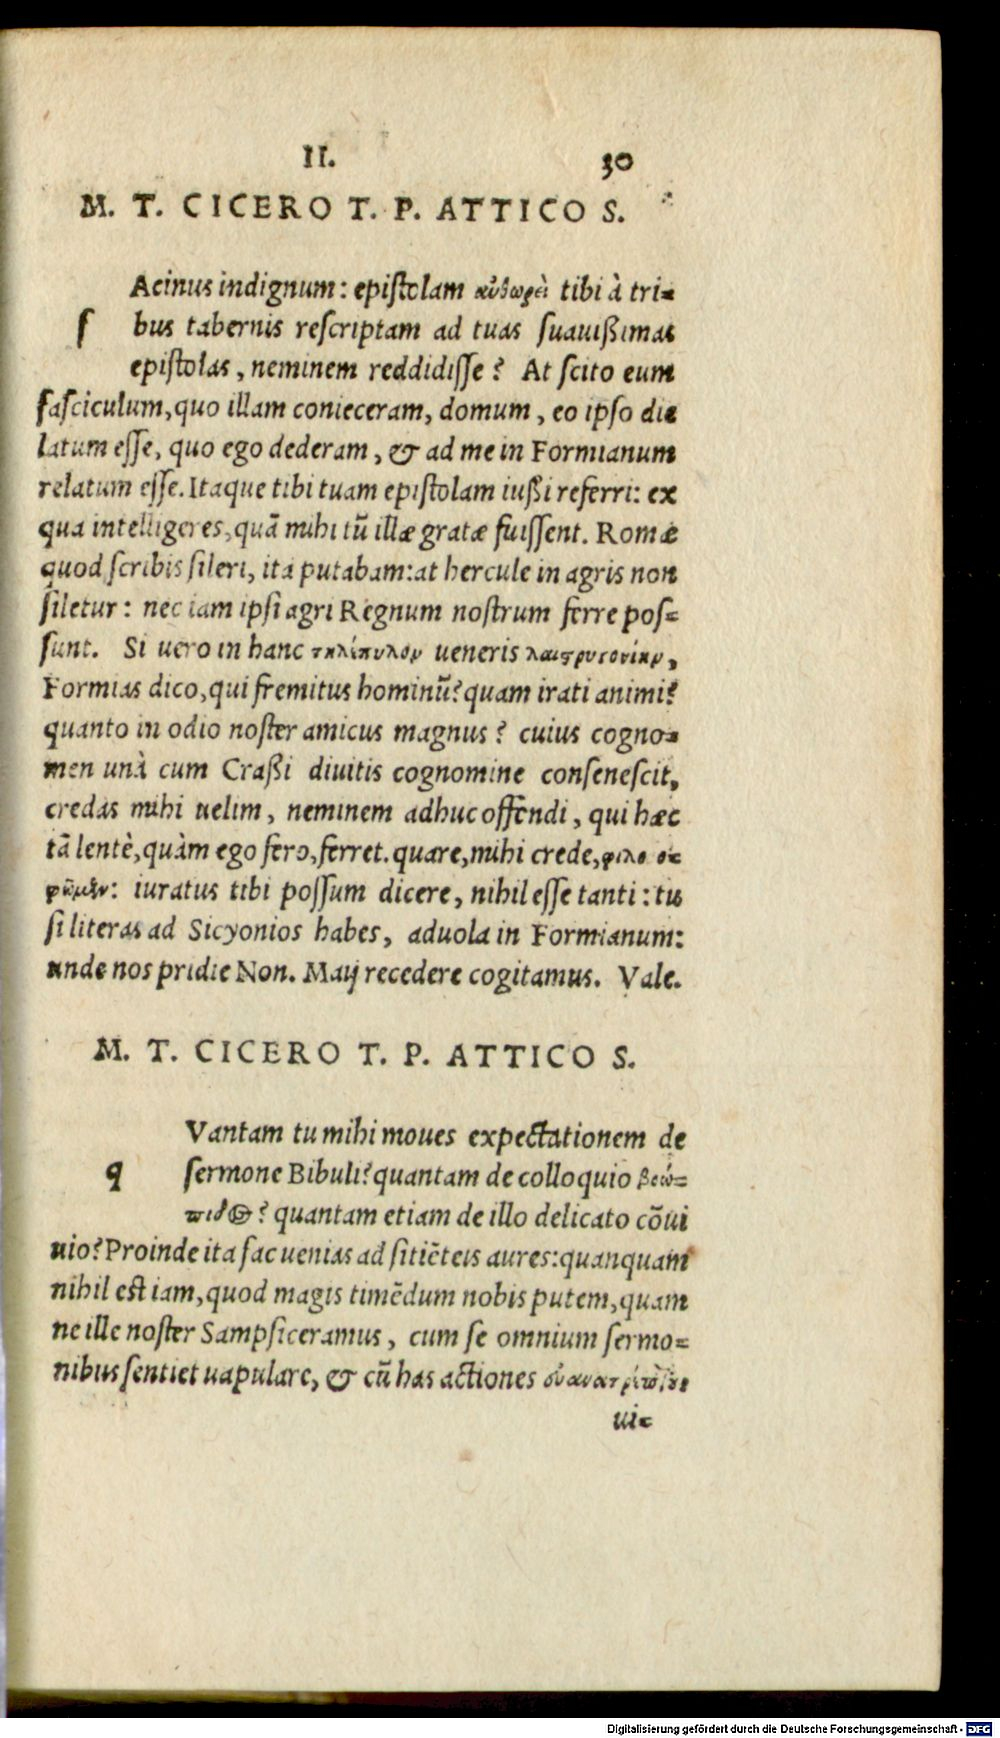 II. 30
M. T. CICERO T. P. ATTICO S.
Acinus indignum: epiſtolam αὐθωρεὶ tibi à tri-
f bus tabernis reſcriptam ad tuas ſuauißimas
epiſtolas, neminem reddidiſſe? At ſcito eum
faſciculum, quo illam conieceram, domum, eo ipſo die
latum eſſe, quo ego dederam, & ad me in Formianum
relatum eſſe. Itaque tibi tuam epiſtolam iußi referri: ex
qua intelligeres, quã mihi tũ illæ gratæ fuiſſent. Romæ
quod ſcribis ſileri, ita putabam: at hercule in agris non
ſiletur: nec iam ipſi agri Regnum noſtrum ferre poſ-
ſunt. Si uero in hanc τηλέπυλον ueneris λαιστρυγονίην,
Formias dico, qui fremitus hominũ? quam irati animi?
quanto in odio noſter amicus magnus? cuius cogno-
men unà cum Craßi diuitis cognomine conſeneſcit,
credas mihi uelim, neminem adhuc offendi, qui hæc
tã lentè, quàm ego fero, ferret. quare, mihi crede, φιλο σο
φῶμεν: iuratus tibi poſſum dicere, nihil eſſe tanti: tu
ſi literas ad Sicyonios habes, aduola in Formianum:
unde nos pridie Non. Maij recedere cogitamus. Vale.
M. T. CICERO T. P. ATTICO S.
Vantam tu mihi moues expectationem de
q ſermone Bibuli? quantam de colloquio βοώ-
πιδος? quantam etiam de illo delicato cõui
uio? Proinde ita fac uenias ad ſitiẽteis aures: quanquam
nihil eſt iam, quod magis timẽdum nobis putem, quam
ne ille noſter Sampſiceramus, cum ſe omnium ſermo-
nibus ſentiet uapulare, & cũ has actiones
ui-
Digitalisierung gefördert durch die Deutsche Forschungsgemeinschaft - DFG